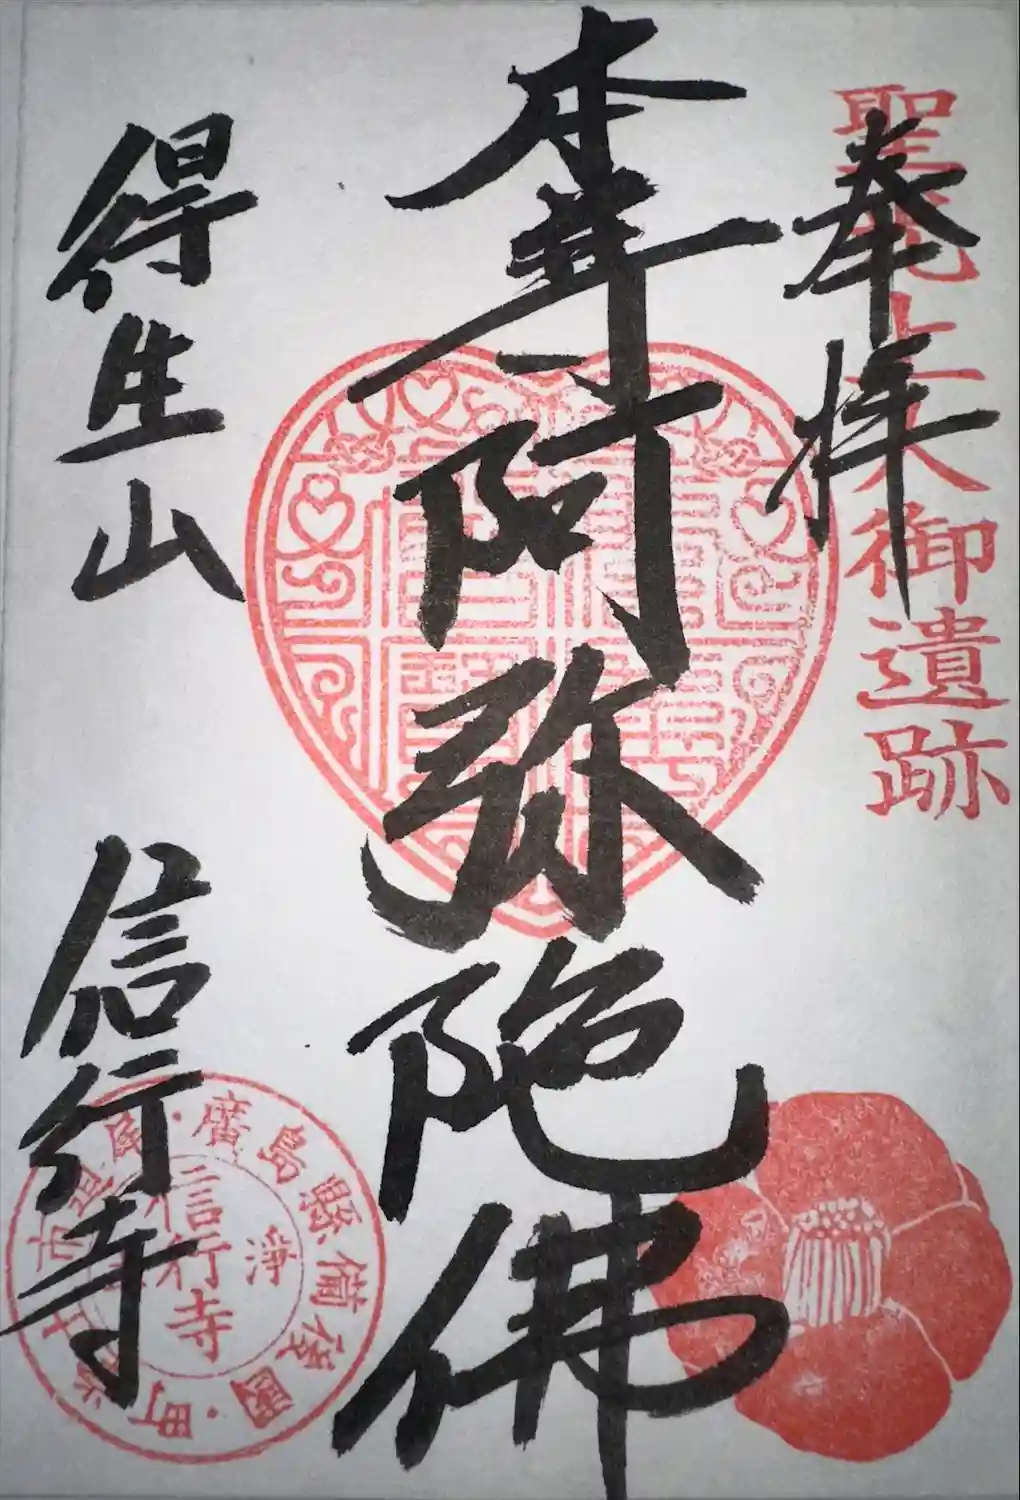 奉拝
聖光上人御遺跡
本尊
阿弥陀佛
得生山
信行寺
信行寺
淨
廣島縣備後國